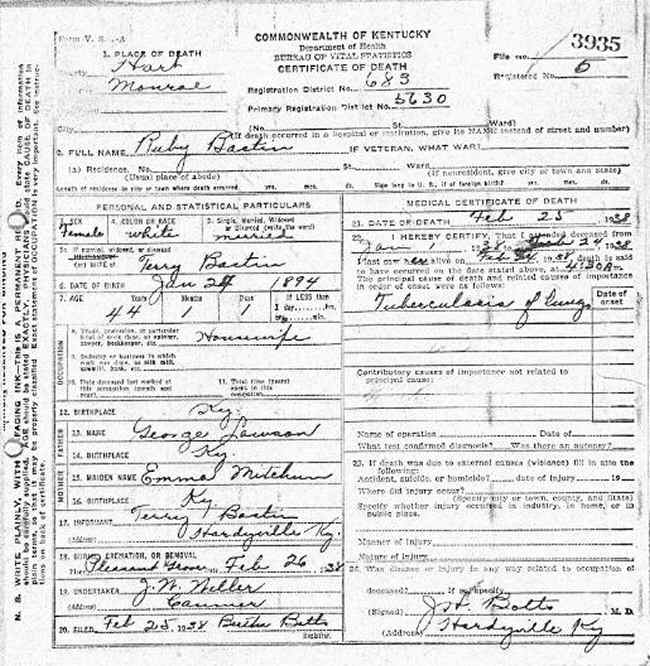 Form V. S. 1-A
COMMONWEALTH OF KENTUCKY
Department of Health
BUREAU OF VITAL STATISTICS
CERTIFICATE OF DEATH
File No. 3935
Registered No. 6
1. PLACE OF DEATH
Hart
Monroe
Registration District No. 683
Primary Registration District No. 5630
City (No. St. Ward)
(If death occurred in a hospital or institution, give its NAME instead of street and number)
2. FULL NAME Ruby Bastin IF VETERAN, WHAT WAR?
(a) Residence. No. St. Ward
(Usual place of abode) (If nonresident, give city or town and State)
Length of residence in city or town where death occurred yrs. mos. ds. How long in U. S., if of foreign birth? yrs. mos. ds.
PERSONAL AND STATISTICAL PARTICULARS
3. SEX Female
4. COLOR OR RACE white
5. Single, Married, Widowed or Divorced (write the word) married
5a. If married, widowed, or divorced
(or) WIFE of Terry Bastin
6. DATE OF BIRTH Jan 24 1894
7. AGE Years Months Days If LESS than
44 1 1 1 day, hrs.
or min.
OCCUPATION
8. Trade, profession, or particular kind of work done, as spinner, sawyer, bookkeeper, etc. Housewife
9. Industry or business in which work was done, as silk mill, sawmill, bank, etc.
10. Date deceased last worked at this occupation (month and year)
11. Total time (years) spent in this occupation
12. BIRTHPLACE Ky.
FATHER
13. NAME George Lawson
14. BIRTHPLACE Ky.
MOTHER
15. MAIDEN NAME Emma Mitchum
16. BIRTHPLACE Ky
17. INFORMANT Terry Bastin
(Address) Hardyville Ky.
18. BURIAL, CREMATION, OR REMOVAL
Place Pleasant Grove Feb 26 38
19. UNDERTAKER J. W. Weller
(Address) Canmer
20. FILED Feb 25, 1938 Bertha Botts
Registrar.
MEDICAL CERTIFICATE OF DEATH
21. DATE OF DEATH Feb 25, 1938
22. I HEREBY CERTIFY, That I attended deceased from
Jan 1938 to Feb 24, 1938
I last saw her alive on Feb 24, 1938, death is said
to have occurred on the date stated above, at 4:30 A m.
The principal cause of death and related causes of importance
in order of onset were as follows:
Date of onset
Tuberculosis of Lungs
Contributory causes of importance not related to
principal cause:
Name of operation Date of
What test confirmed diagnosis? Was there an autopsy?
23. If death was due to external causes (violence) fill in also the
following:
Accident, suicide, or homicide? date of injury 19
Where did injury occur?
(Specify city or town, county, and State)
Specify whether injury occurred in industry, in home, or in
public place.
Manner of injury
Nature of injury
24. Was disease or injury in any way related to occupation of
deceased? If so, specify
(Signed) J. H. Botts M. D.
(Address) Hardyville Ky